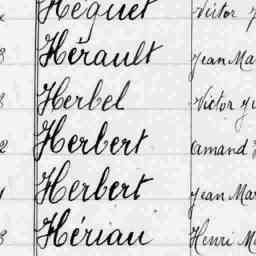 Héguet Victor
Hérault Jean Ma
Herbel Victor Ju
Herbert Amand
Herbert Jean Mar
Hérian Henri M